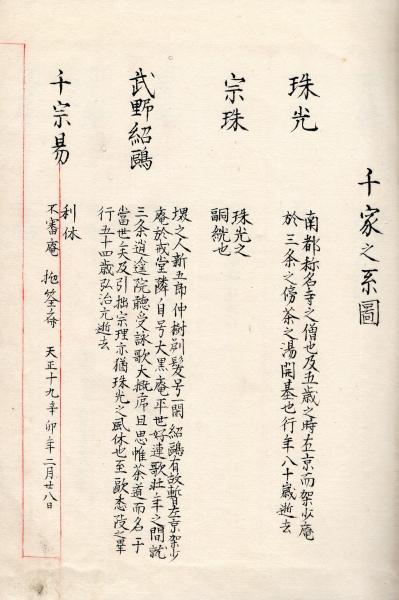 千家之系圖
珠光
南都称名寺之僧也及五歳之時在京而架少庵
於三条之傍茶之湯開基也行年八十歳逝去
宗珠
珠光之
嗣統也
武野紹鷗
堺之人新五郎仲樹剃髪号一閑紹鷗有故暫在京架少
庵於戒堂隣自号大黒庵平世好連歌壮年之間就
三条逍遥院聴受詠歌大概席且思惟茶道而名于
當世矣及引拙宗理亦猶珠光之風休也至
行五十四歳弘治元逝去
千宗易
利休
不審庵 抛筌斎 天正十九辛卯年二月廿八日